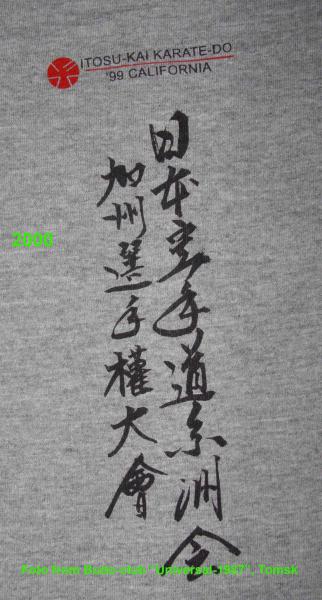 ITOSU-KAI KARATE-DO
'99 CALIFORNIA
日本空手道糸洲会
加州選手權大會
2000
Foto from Budo-club "Universal-1987". Tomsk